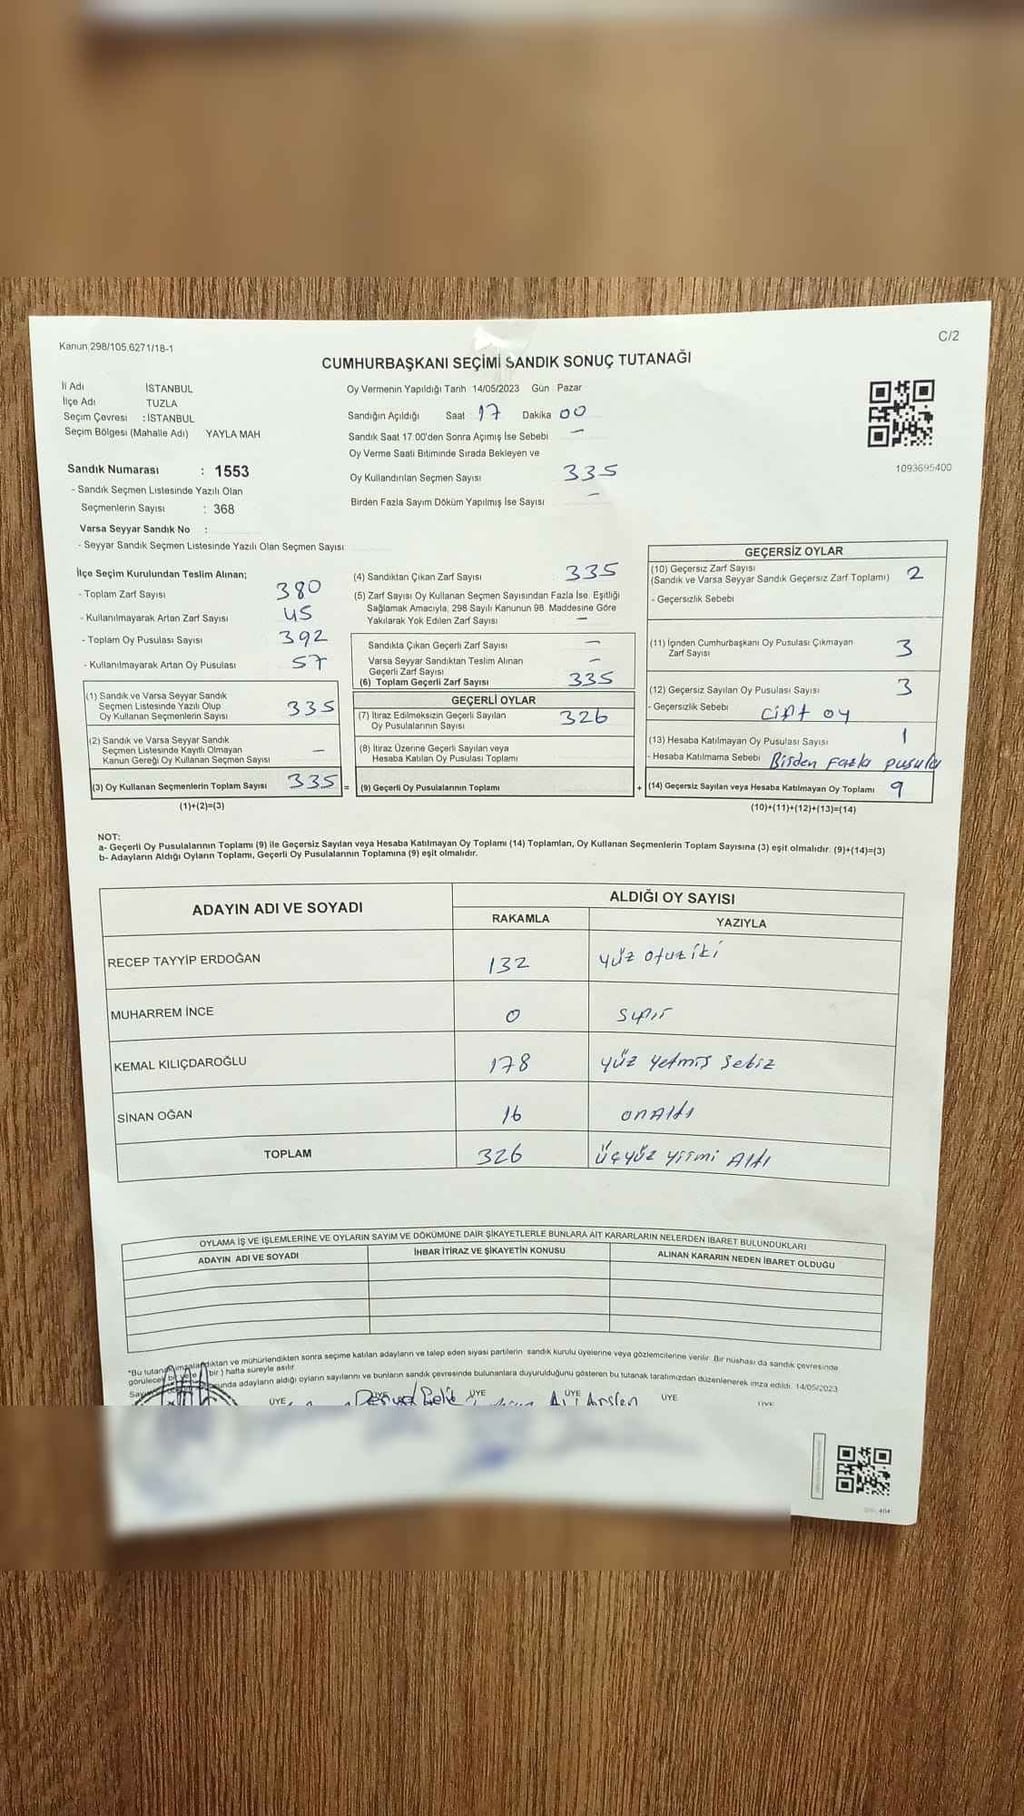 Kanun 298/105,6271/18-1
C/2
CUMHURBAŞKANI SEÇİMİ SANDIK SONUÇ TUTANAĞI
İl Adı İSTANBUL
İlçe Adı TUZLA
Seçim Çevresi :İSTANBUL
Seçim Bölgesi (Mahalle Adı) YAYLA MAH
Sandık Numarası : 1553
- Sandık Seçmen Listesinde Yazılı Olan
Seçmenlerin Sayısı : 368
Varsa Seyyar Sandık No :
- Seyyar Sandık Seçmen Listesinde Yazılı Olan Seçmen Sayısı
Oy Vermenin Yapıldığı Tarih 14/05/2023 Gün Pazar
Sandığın Açıldığı Saat 17 Dakika 00
Sandık Saat 17.00'den Sonra Açımış İse Sebebi —
Oy Verme Saati Bitiminde Sırada Bekleyen ve
Oy Kullandırılan Seçmen Sayısı 335
Birden Fazla Sayım Döküm Yapılmış İse Sayısı —
1093695400
İlçe Seçim Kurulundan Teslim Alınan;
- Toplam Zarf Sayısı 380
- Kullanılmayarak Artan Zarf Sayısı 45
- Toplam Oy Pusulası Sayısı 392
- Kullanılmayarak Artan Oy Pusulası 57
(1) Sandık ve Varsa Seyyar Sandık
Seçmen Listesinde Yazılı Olup
Oy Kullanan Seçmenlerin Sayısı 335
(2) Sandık ve Varsa Seyyar Sandık
Seçmen Listesinde Kayıtlı Olmayan
Kanun Gereği Oy Kullanan Seçmen Sayısı —
(3) Oy Kullanan Seçmenlerin Toplam Sayısı 335 =
(1)+(2)=(3)
(4) Sandıktan Çıkan Zarf Sayısı 335
(5) Zarf Sayısı Oy Kullanan Seçmen Sayısından Fazla İse. Eşitliği
Sağlamak Amacıyla, 298 Sayılı Kanunun 98. Maddesine Göre
Yakılarak Yok Edilen Zarf Sayısı —
Sandıkta Çıkan Geçerli Zarf Sayısı —
Varsa Seyyar Sandıktan Teslim Alınan
Geçerli Zarf Sayısı —
(6) Toplam Geçerli Zarf Sayısı 335
GEÇERLİ OYLAR
(7) İtiraz Edilmeksizin Geçerli Sayılan
Oy Pusulalarının Sayısı 326
(8) İtiraz Üzerine Geçerli Sayılan veya
Hesaba Katılan Oy Pusulası Toplamı
(9) Geçerli Oy Pusulalarının Toplamı +
GEÇERSİZ OYLAR
(10) Geçersiz Zarf Sayısı
(Sandık ve Varsa Seyyar Sandık Geçersiz Zarf Toplamı) 2
- Geçersizlik Sebebi
(11) İçinden Cumhurbaşkanı Oy Pusulası Çıkmayan
Zarf Sayısı 3
(12) Geçersiz Sayılan Oy Pusulası Sayısı 3
- Geçersizlik Sebebi Çift oy
(13) Hesaba Katılmayan Oy Pusulası Sayısı 1
- Hesaba Katılmama Sebebi Birden Fazla pusula
(14) Geçersiz Sayılan veya Hesaba Katılmayan Oy Toplamı 9
(10)+(11)+(12)+(13)=(14)
NOT:
a- Geçerli Oy Pusulalarının Toplamı (9) ile Geçersiz Sayılan veya Hesaba Katılmayan Oy Toplamı (14) Toplamları, Oy Kullanan Seçmenlerin Toplam Sayısına (3) eşit olmalıdır. (9)+(14)=(3)
b- Adayların Aldığı Oyların Toplamı, Geçerli Oy Pusulalarının Toplamına (9) eşit olmalıdır.
ADAYIN ADI VE SOYADI ALDIĞI OY SAYISI
RAKAMLA YAZIYLA
RECEP TAYYİP ERDOĞAN 132 yüz otuz iki
MUHARREM İNCE 0 sıfır
KEMAL KILIÇDAROĞLU 178 yüz yetmiş sekiz
SİNAN OĞAN 16 on Altı
TOPLAM 326 üçyüz yirmi Altı
OYLAMA İŞ VE İŞLEMLERİNE VE OYLARIN SAYIM VE DÖKÜMÜNE DAİR ŞİKAYETLERLE BUNLARA AİT KARARLARIN NELERDEN İBARET BULUNDUKLARI
ADAYIN ADI VE SOYADI İHBAR İTİRAZ VE ŞİKAYETİN KONUSU ALINAN KARARIN NEDEN İBARET OLDUĞU
*Bu tutanak imzalandıktan ve mühürlendikten sonra seçime katılan adayların ve talep eden siyasi partilerin sandık kurulu üyelerine veya gözlemcilerine verilir. Bir nüshası da sandık çevresinde
görülecek bir yere bir) hafta süreyle asılır
adayların aldığı oyların sayılarını ve bunların sandık çevresinde bulunanlara duyurulduğunu gösteren bu tutanak tarafımızdan düzenlenerek imza edildi. 14/05/2023
ÜYE ÜYE ÜYE ÜYE
Arslan